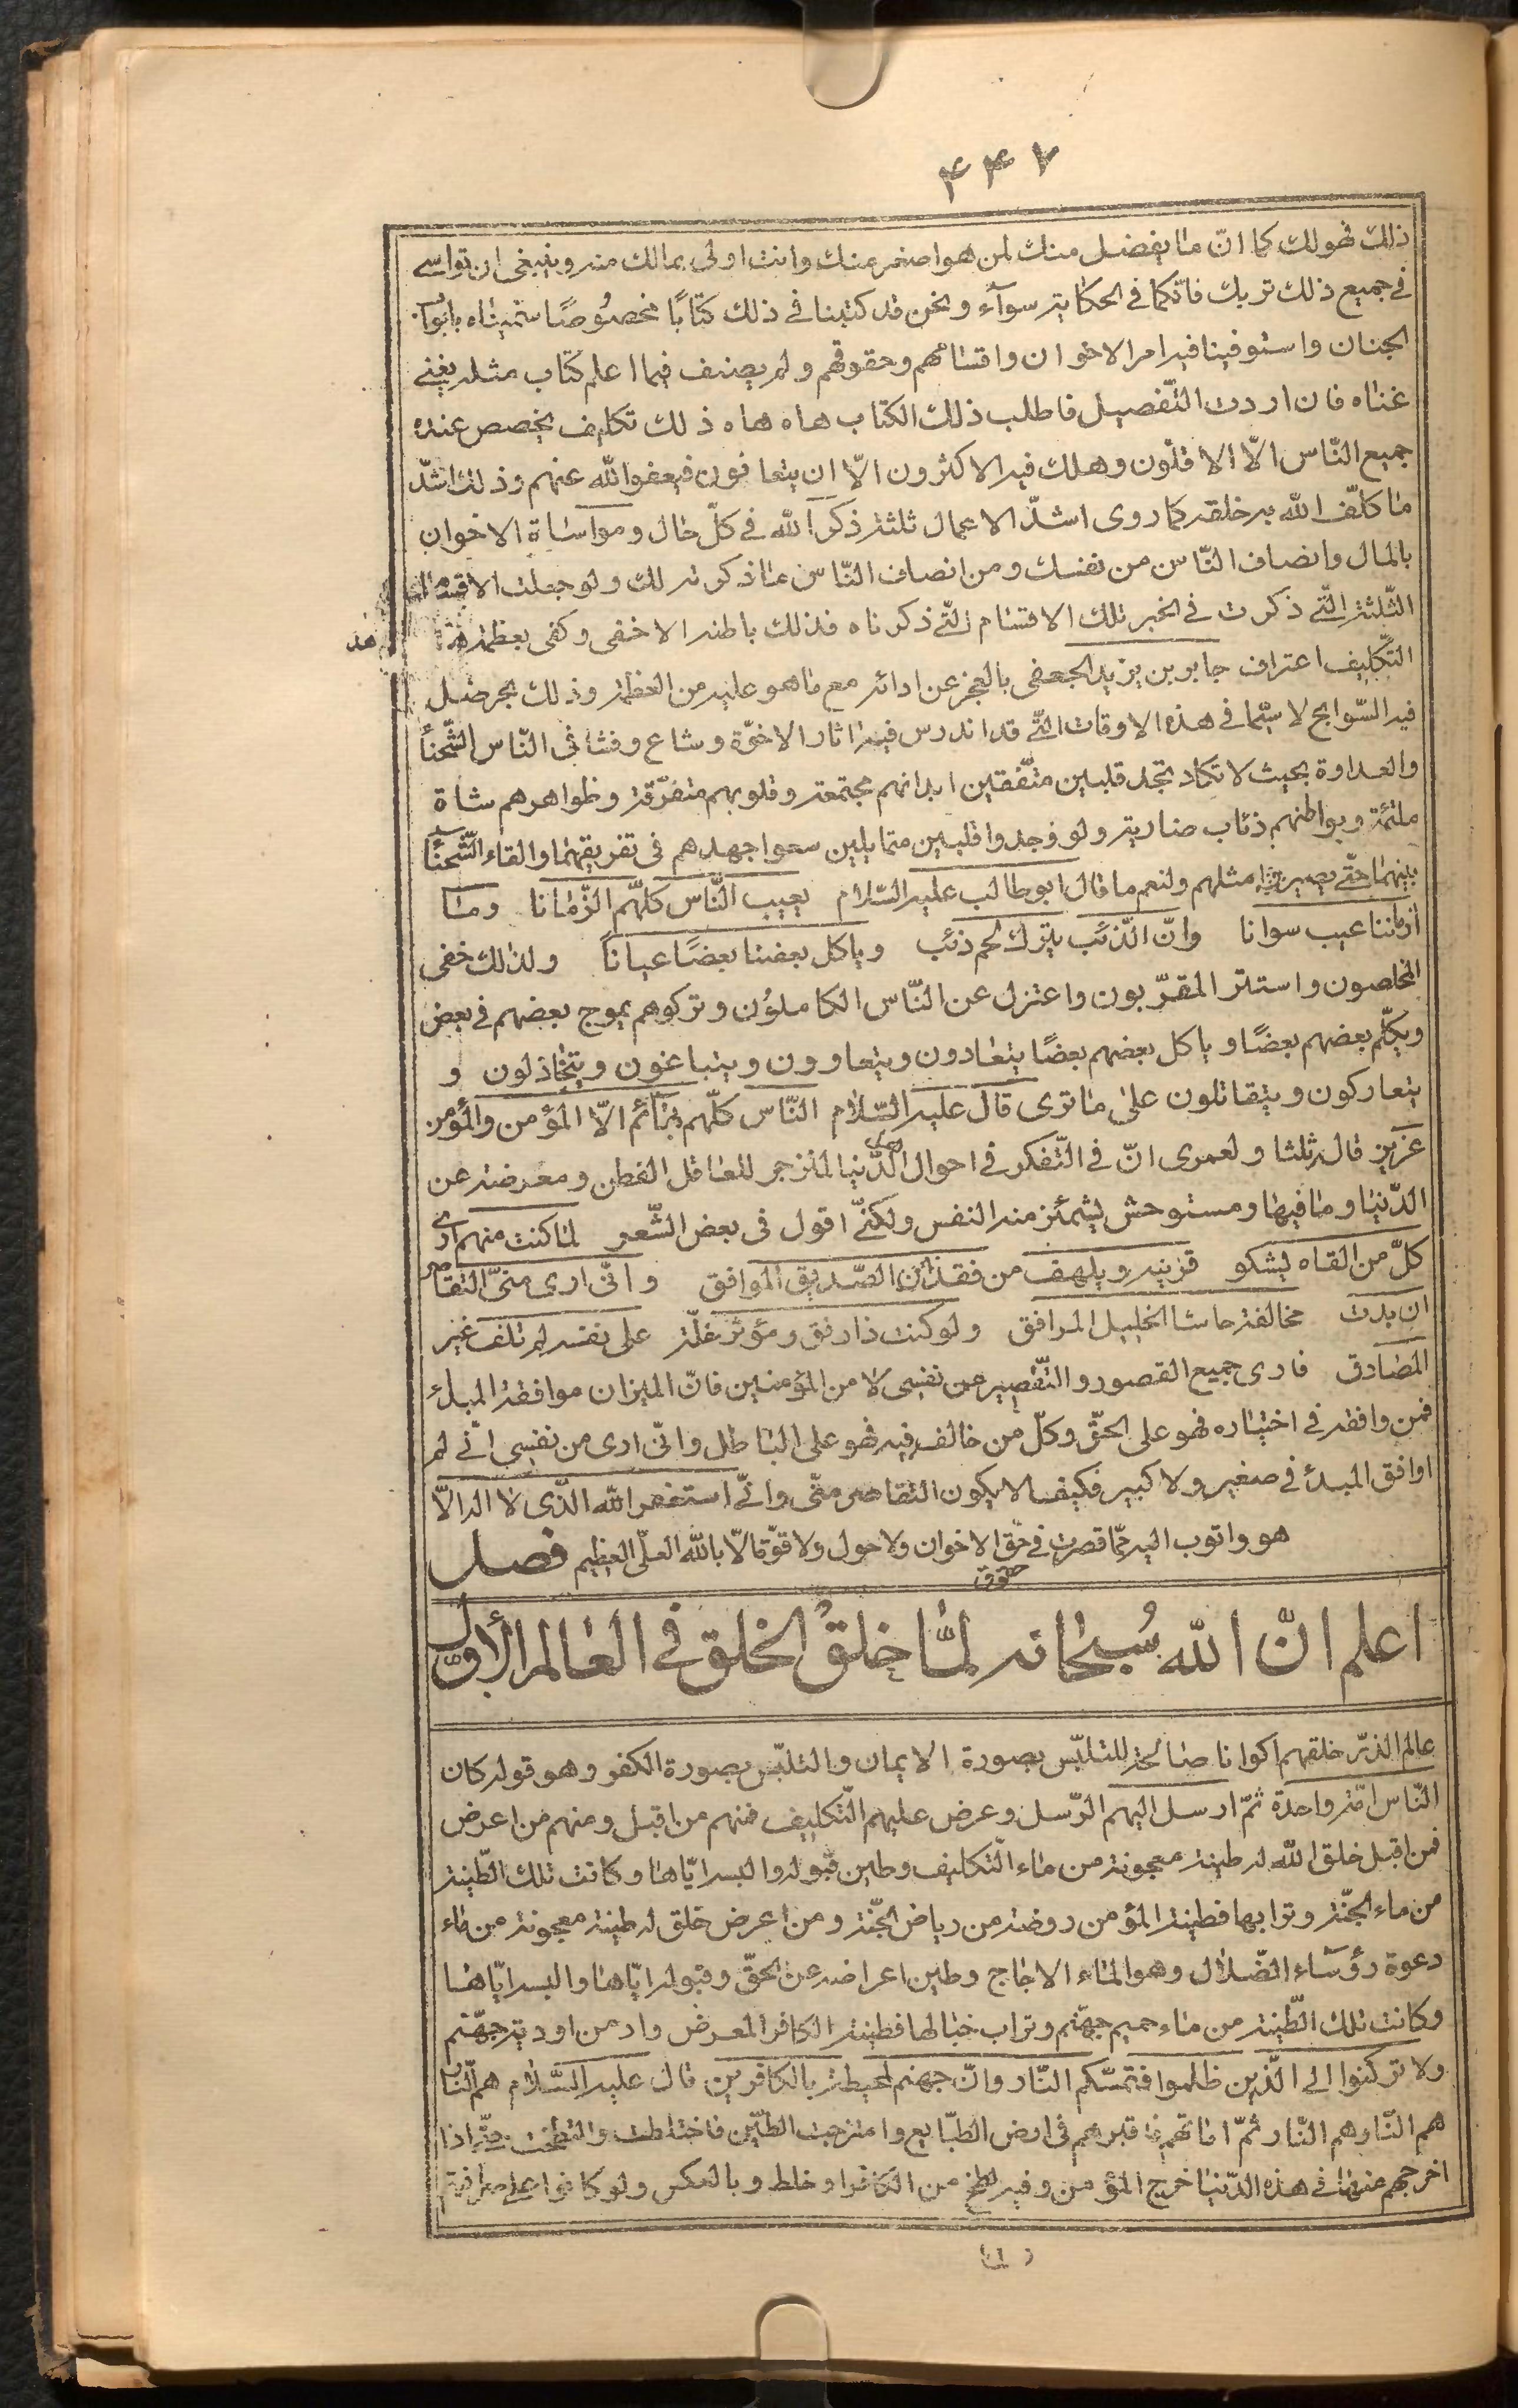 ۴۴۷
ذلك فهو لك كما انّ ما يفضل منك لمن هو اصغر منك وانت اولى بمالك منه وينبغى ان تواسى
فى جميع ذلك تربك فانكما فى الحكاية سوآء ونحن قد كتبنا فى ذلك كتابًا مخصُوصًا سمّيناه بابواب
الجنان واستوفينا فيه امر الاخوان واقسامهم وحقوقهم ولم يصنف فيما اعلم كتاب مثله يغنى
غناه فان اردت التّفصيل فاطلب ذلك الكتاب هاه هاه ذلك تكليف يخصص عنده
جميع النّاس الّا الاقلّون وهلك فيه الاكثرون الّا ان يتعافون فيعفو الله عنهم وذلك اشدّ
ما كلّف الله به خلقه كما روى اشدّ الاعمال ثلثة ذكر الله فى كلّ حال ومواساة الاخوان
بالمال وانصاف النّاس من نفسك ومن انصاف النّاس ما ذكرته لك ولو جعلت الاقسام
الثّلثة الّتى ذكرت فى الخبر تلك الاقسام الّتى ذكرناه فذلك باطنه الاخفى وكفى بعظمة هذا
التّكليف اعتراف جابر بن يزيد الجعفى بالعجز عن ادائه مع ما هو عليه من العظمة وذلك بحر ضلّ
فيه السّوابح لا سيّما فى هذه الاوقات الّتى قد اندرس فيها اثار الاخوّة وشاع وفشا فى النّاس الشّحنآ
والعداوة بحيث لا تكاد تجد قلبين متّفقين ابدانهم مجتمعة وقلوبهم متفرّقة وظواهرهم شاة
ملتئمة وبواطنهم ذئاب ضارية ولو وجدوا قلبين متمايلين سعوا جهدهم فى تفريقهما والقاء الشّحنآ
بينهما حتّى يصيرا مثلهم ولنعم ما قال ابو طالب عليه السّلام يعيب النّاس كلّهم الزّمانا وما
لزماننا عيب سوانا وانّ الذّئب يترك لحم ذئب وياكل بعضنا بعضًا عيانًا ولذلك خفى
المخلصون واستتر المقرّبون واعتزل عن النّاس الكاملوُن وتركوهم يموج بعضهم فى بعض
ويكلّم بعضهم بعضًا وياكل بعضهم بعضًا يتعادون ويتعاوون ويتباغون ويتخاذلون و
يتعاركون ويتقاتلون على ما ترى قال عليه السّلام النّاس كلّهم بهائم الّا المؤمن والمؤمن
عزيز قاله ثلثا ولعمرى انّ فى التّفكر فى احوال اهل الدّنيا لمنزجر للعاقل الفطن ومعرضة عن
الدّنيا وما فيها ومستوحش يشمئز منه النفس ولكنّى اقول فى بعض الشّعر لما كنت منهم ارى
كلّ من القاه يشكو قرينه ويلهف من فقدان الصّديق الموافق وانّى ارى منّى التقاصر
ان بدت مخالفة حاشا الخليل المرافق ولو كنت ذا رفق ومؤثر خلّة على نفسه لم تلف غير
المصادق فارى جميع القصور والتّقصير من نفسى لا من المؤمنين فانّ الميزان موافقة المبدئ
فمن وافقه فى اختياره فهو على الحقّ وكلّ من خالف فيه فهو على الباطل وانّى ارى من نفسى انّى لم
اوافق المبدئ فى صغير ولا كبير فكيف لا يكون التقاصر منّى وانّى استغفر الله الّذى لا اله الّا
هو واتوب اليه ممّا قصرت فى حقّ الاخوان ولا حول ولا قوّة الّا بالله العلىّ العظيم فصل
حقوق
اعلم انّ الله سُبحانه لمّا خلق الخلق فى العالم الأوّل
عالم الذّر خلقهم اكوانا صالحة للتلبّس بصورة الايمان والتلبّس بصورة الكفر وهو قوله كان
النّاس امّة واحدة ثمّ ارسل اليهم الرّسل وعرض عليهم التّكليف فمنهم من اقبل ومنهم من اعرض
فمن اقبل خلق الله له طينة معجونة من ماء التّكليف وطين قبوله والبسه ايّاها وكانت تلك الطّينة
من ماء الجنّة وترابها فطينة المؤمن روضة من رياض الجنّة ومن اعرض خلق له طينة معجونة من ماء
دعوة رؤسآء الضّلال وهو الماء الاجاج وطين اعراضه عن الحقّ وقبوله ايّاها والبسه ايّاها
وكانت تلك الطّينة من ماء حميم جهنّم وتراب خبالها فطينة الكافر المعرض واد من اودية جهنّم
ولا تركنوا الى الّذين ظلموا فتمسّكم النّار وانّ جهنم لمحيطة بالكافرين قال عليه السّلام هم النّار
هم النّار هم النّار ثمّ اماتهم فاقبرهم فى ارض الطّبايع وامتزجت الطّين فاختلطت والتطخت حتّى اذا
اخرجهم منها فى هذه الدّنيا خرج المؤمن وفيه لطخ من الكافر او خلط وبالعكس ولو كانوا على صرافتهم